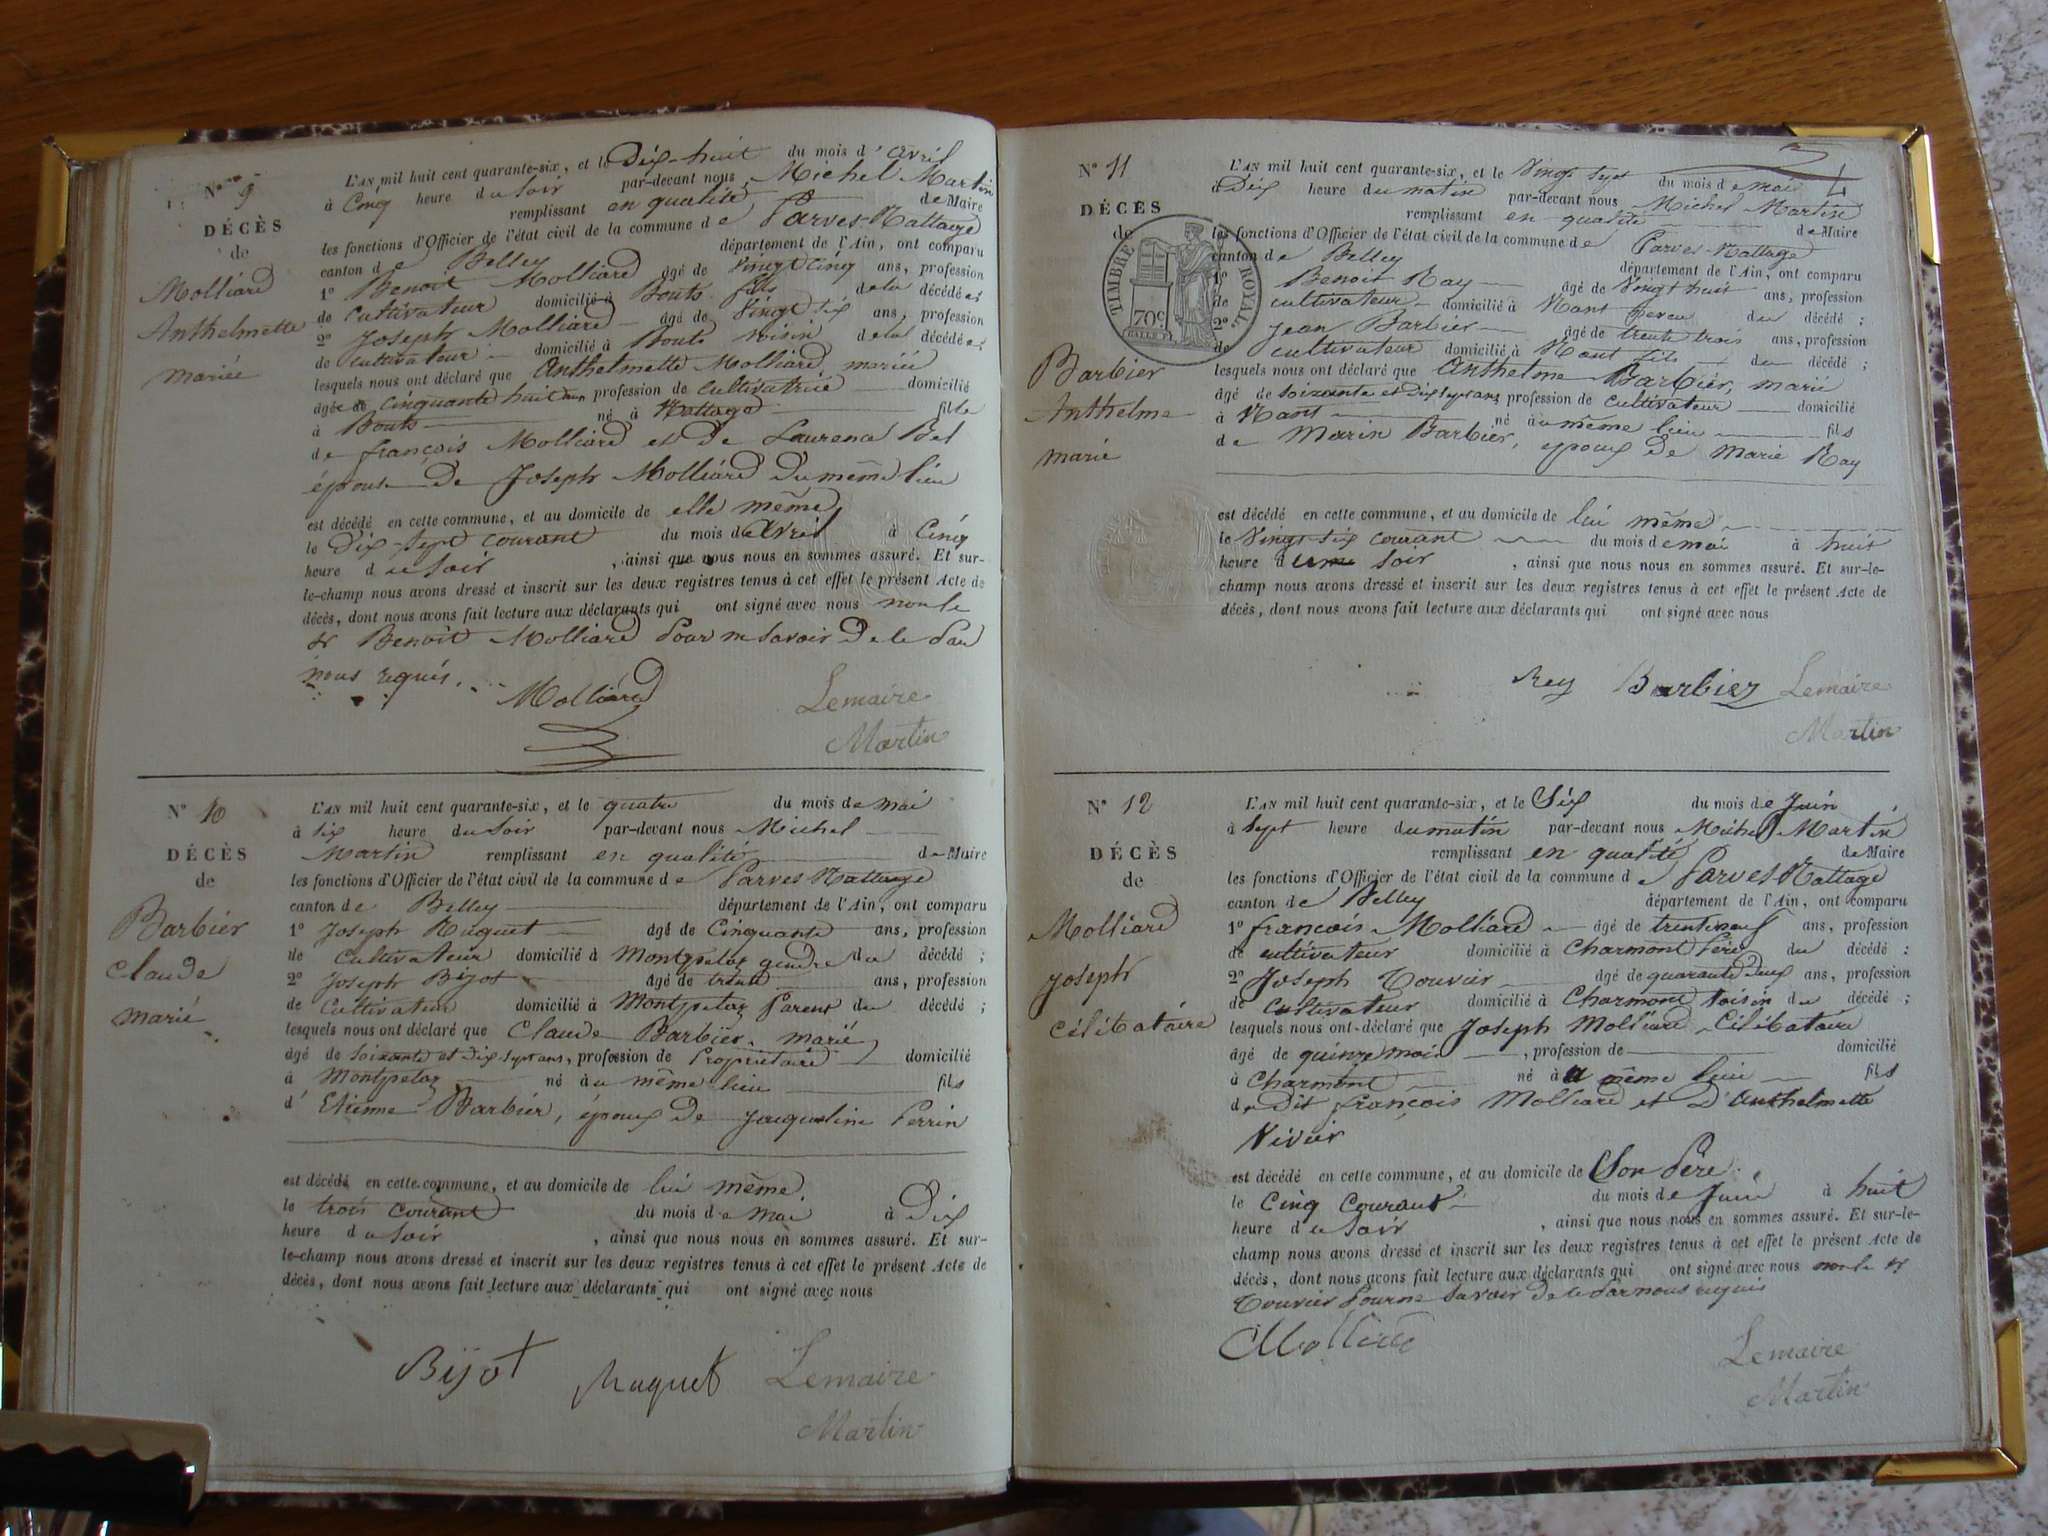 N° 9
DÉCÈS
de
Molliard
Anthelmette
mariée
L'AN mil huit cent quarante-six, et le Dix-huit du mois d'avril
à Cinq heure du Soir par-devant nous, Michel Martin
remplissant en qualité de Maire
les fonctions d'Officier de l'état civil de la commune de Parves-Nattage
canton de Belley département de l'Ain, ont comparu
1° Benoit Molliard agé de Vingt Cinq ans, profession
de cultivateur domicilié à Bouts fils de la décédée;
2° Joseph Molliard agé de Vingt six ans, profession
de cultivateur domicilié à Bouts voisin de la décédée;
lesquels nous ont déclaré que Anthelmette Molliard, mariée
âgée de Cinquante huit ans profession de Cultivatrice domicilié
à Bouts né à Nattage fille
de françois Molliard et de Laurena Bel
épouse de Joseph Molliard du même lieu
est décédé en cette commune, et au domicile de elle même
le Dix-Sept courant du mois de avril à Cinq
heure du Soir , ainsi que nous nous en sommes assuré. Et sur-
le-champ nous avons dressé et inscrit sur les deux registres tenus à cet effet le présent Acte de
décès, dont nous avons fait lecture aux déclarants qui ont signé avec nous non le
sr Benoit Molliard Pour ne savoir De le Par
nous requis.
Molliard Lemaire
Martin
N° 10
DÉCÈS
de
Barbier
Claude
marié
L'AN mil huit cent quarante-six, et le quatre du mois de mai
à six heure du Soir par-devant nous Michel
Martin remplissant en qualité de Maire
les fonctions d'Officier de l'état civil de la commune de Parves Nattage
canton de Belley département de l'Ain, ont comparu
1° Joseph Huguet agé de Cinquante ans, profession
de Cultivateur domicilié à Montpelaz gendre du décédé;
2° Joseph Bijot âgé de trente ans, profession
de Cultivateur domicilié à Montpelaz Parent du décédé;
lesquels nous ont déclaré que Claude Barbier, marié,
âgé de Soixante et dix sept ans, profession de Propriétaire domicilié
à Montpelaz né au même lieu fils
d'Etienne Barbier, époux de Jaqueline Perrin
est décédé en cette commune, et au domicile de lui même
le trois courant du mois de Mai à Dix
heure du Soir , ainsi que nous nous en sommes assuré. Et sur-
le-champ nous avons dressé et inscrit sur les deux registres tenus à cet effet le présent Acte de
décès, dont nous avons fait lecture aux déclarants qui ont signé avec nous
Bijot Huguet Lemaire
Martin
N° 11
DÉCÈS
de
TIMBRE ROYAL
70c
Barbier
Anthelme
marié
L'AN mil huit cent quarante-six, et le Vingt Sept du mois de mai
à Dix heure du matin par-devant nous Michel Martin
remplissant en qualité de Maire
les fonctions d'Officier de l'état civil de la commune de Parves-Nattage
canton de Belley département de l'Ain, ont comparu
1° Benoit Ray âgé de Vingt huit ans, profession
de cultivateur domicilié à Nant neveu du décédé;
2° Jean Barbier âgé de trente trois ans, profession
de cultivateur domicilié à Nant fils du décédé;
lesquels nous ont déclaré que Anthelme Barbier, marié
âgé de Soixante et Dix Sept ans profession de Cultivateur domicilié
à Nant né au même lieu fils
de Marin Barbier, époux de Marie Ray
est décédé en cette commune, et au domicile de lui même
le Vingt-six courant du mois de mai à huit
heure du soir , ainsi que nous nous en sommes assuré. Et sur-le-
champ nous avons dressé et inscrit sur les deux registres tenus à cet effet le présent Acte de
décès, dont nous avons fait lecture aux déclarants qui ont signé avec nous
Rey Barbier Lemaire
Martin
N° 12
DÉCÈS
de
Molliard
Joseph
Célibataire
L'AN mil huit cent quarante-six, et le Six du mois de Juin
à Sept heure du matin par-devant nous Michel Martin
remplissant en qualité de Maire
les fonctions d'Officier de l'état civil de la commune de Parves Nattage
canton de Belley département de l'Ain, ont comparu
1° françois Molliard âgé de trente neuf ans, profession
de cultivateur domicilié à Charmont Père du décédé:
2° Joseph Touvier âgé de quarante deux ans, profession
de Cultivateur domicilié à Charmont Voisin du décédé;
lesquels nous ont déclaré que Joseph Molliard Célibataire
âgé de quinze mois , profession de domicilié
à Charmont né au même lieu fils
du Dit françois Molliard et D'Anthelmette
Vivier
est décédé en cette commune, et au domicile de Son Père.
le Cinq Courant du mois de Juin à huit
heure du Soir , ainsi que nous nous en sommes assuré. Et sur-le-
champ nous avons dressé et inscrit sur les deux registres tenus à cet effet le présent Acte de
décès, dont nous avons fait lecture aux déclarants qui ont signé avec nous non le sr
Touvier Pour ne Savoir De le Par nous requis
Molliard Lemaire
Martin